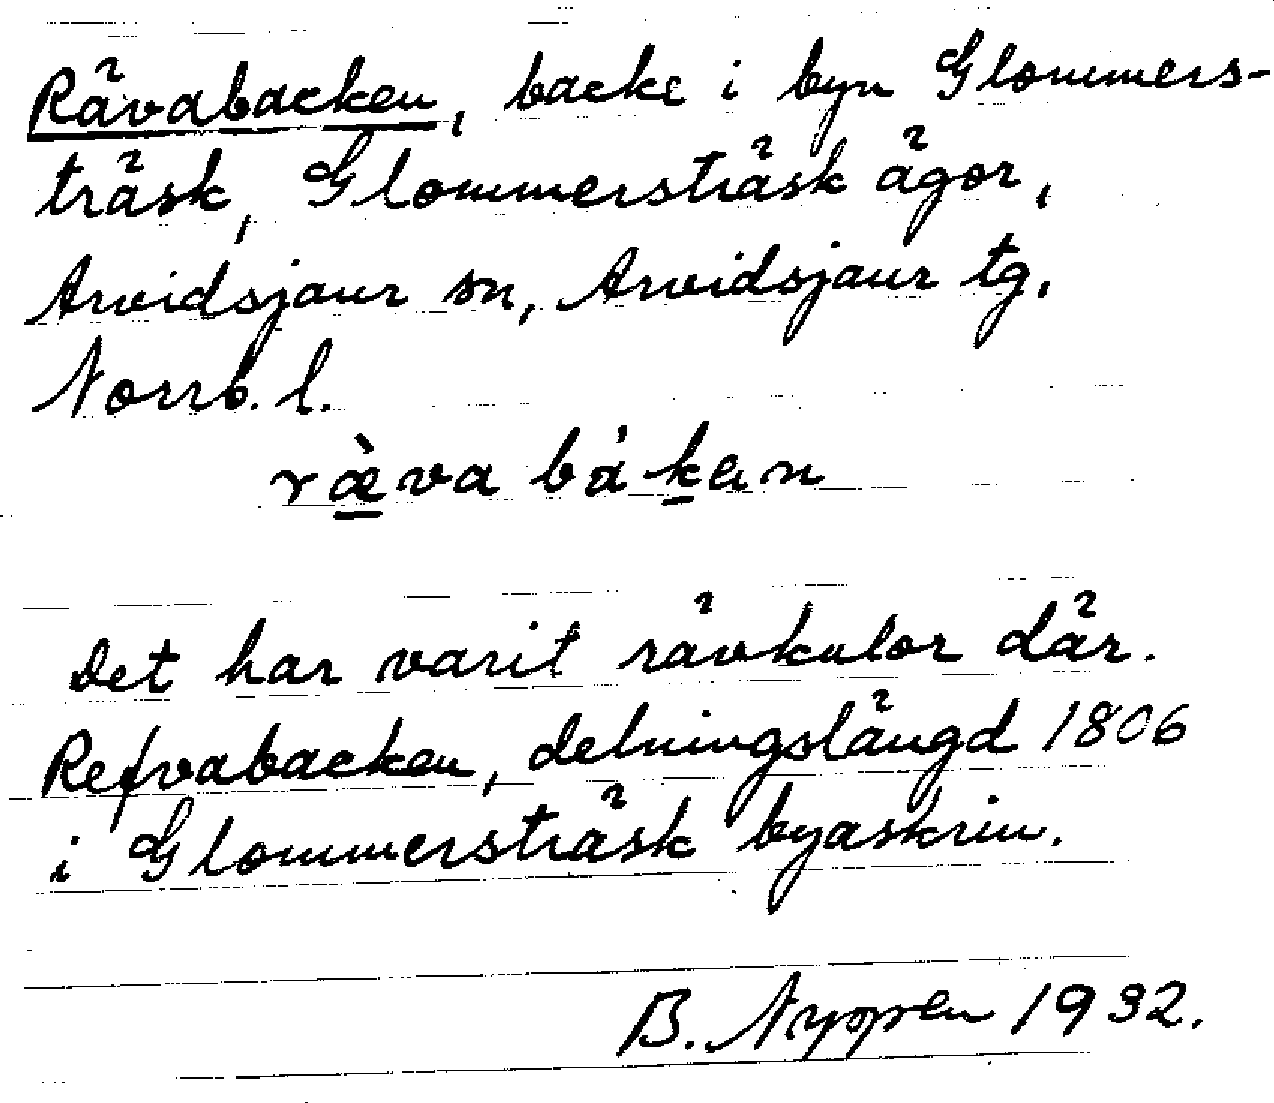 Rävabacken, backe i byn Glommers-
träsk, Glommersträsk ägor,
Arvidsjaur sn, Arvidsjaur tg,
Norrb. l.
ræ̀va bákan
Det har varit rävkulor där.
Refvabacken, delningslängd 1806
i Glommersträsk byaskrin.
B. Nyppen 1932.